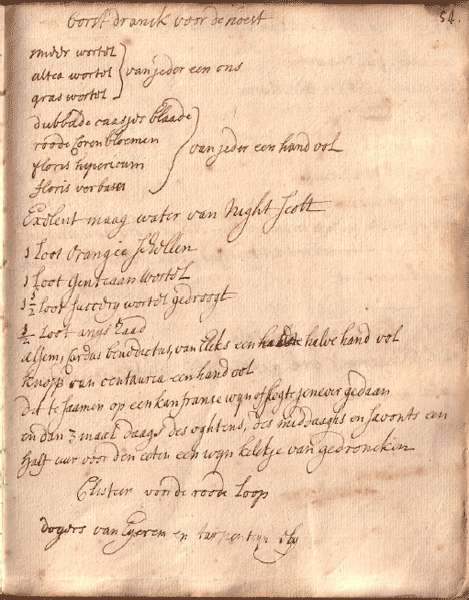 54.
borst dranck voor de hoest
meer wortel
altea wortel
gras wortel
van jeder een ons
dubbelde caasjes blaade
roode Corenbloemen
floris hypericum
floris verbasci
van jeder een hand vol
Exelent maag water van Night Scott
1 Loot orangie schellen
1 Loot Gentiaan wortel
1½ Loot succory wortel gedroogt
½ Loot anys zaad
alsem, Cardus benedictus, van Elcks een halve hand vol
knopp van centauria een hand vol
dit te saamen op een kan franse wyn of segte jenever gedaan
en dan 3 maal daags des oghtens, des middaaghs en savonts een
half uur voor den eeten een wyn kelckje van gedroncken
Clisteer voor de roode Loop
doyers van Eyeren en tarpenteyn oly